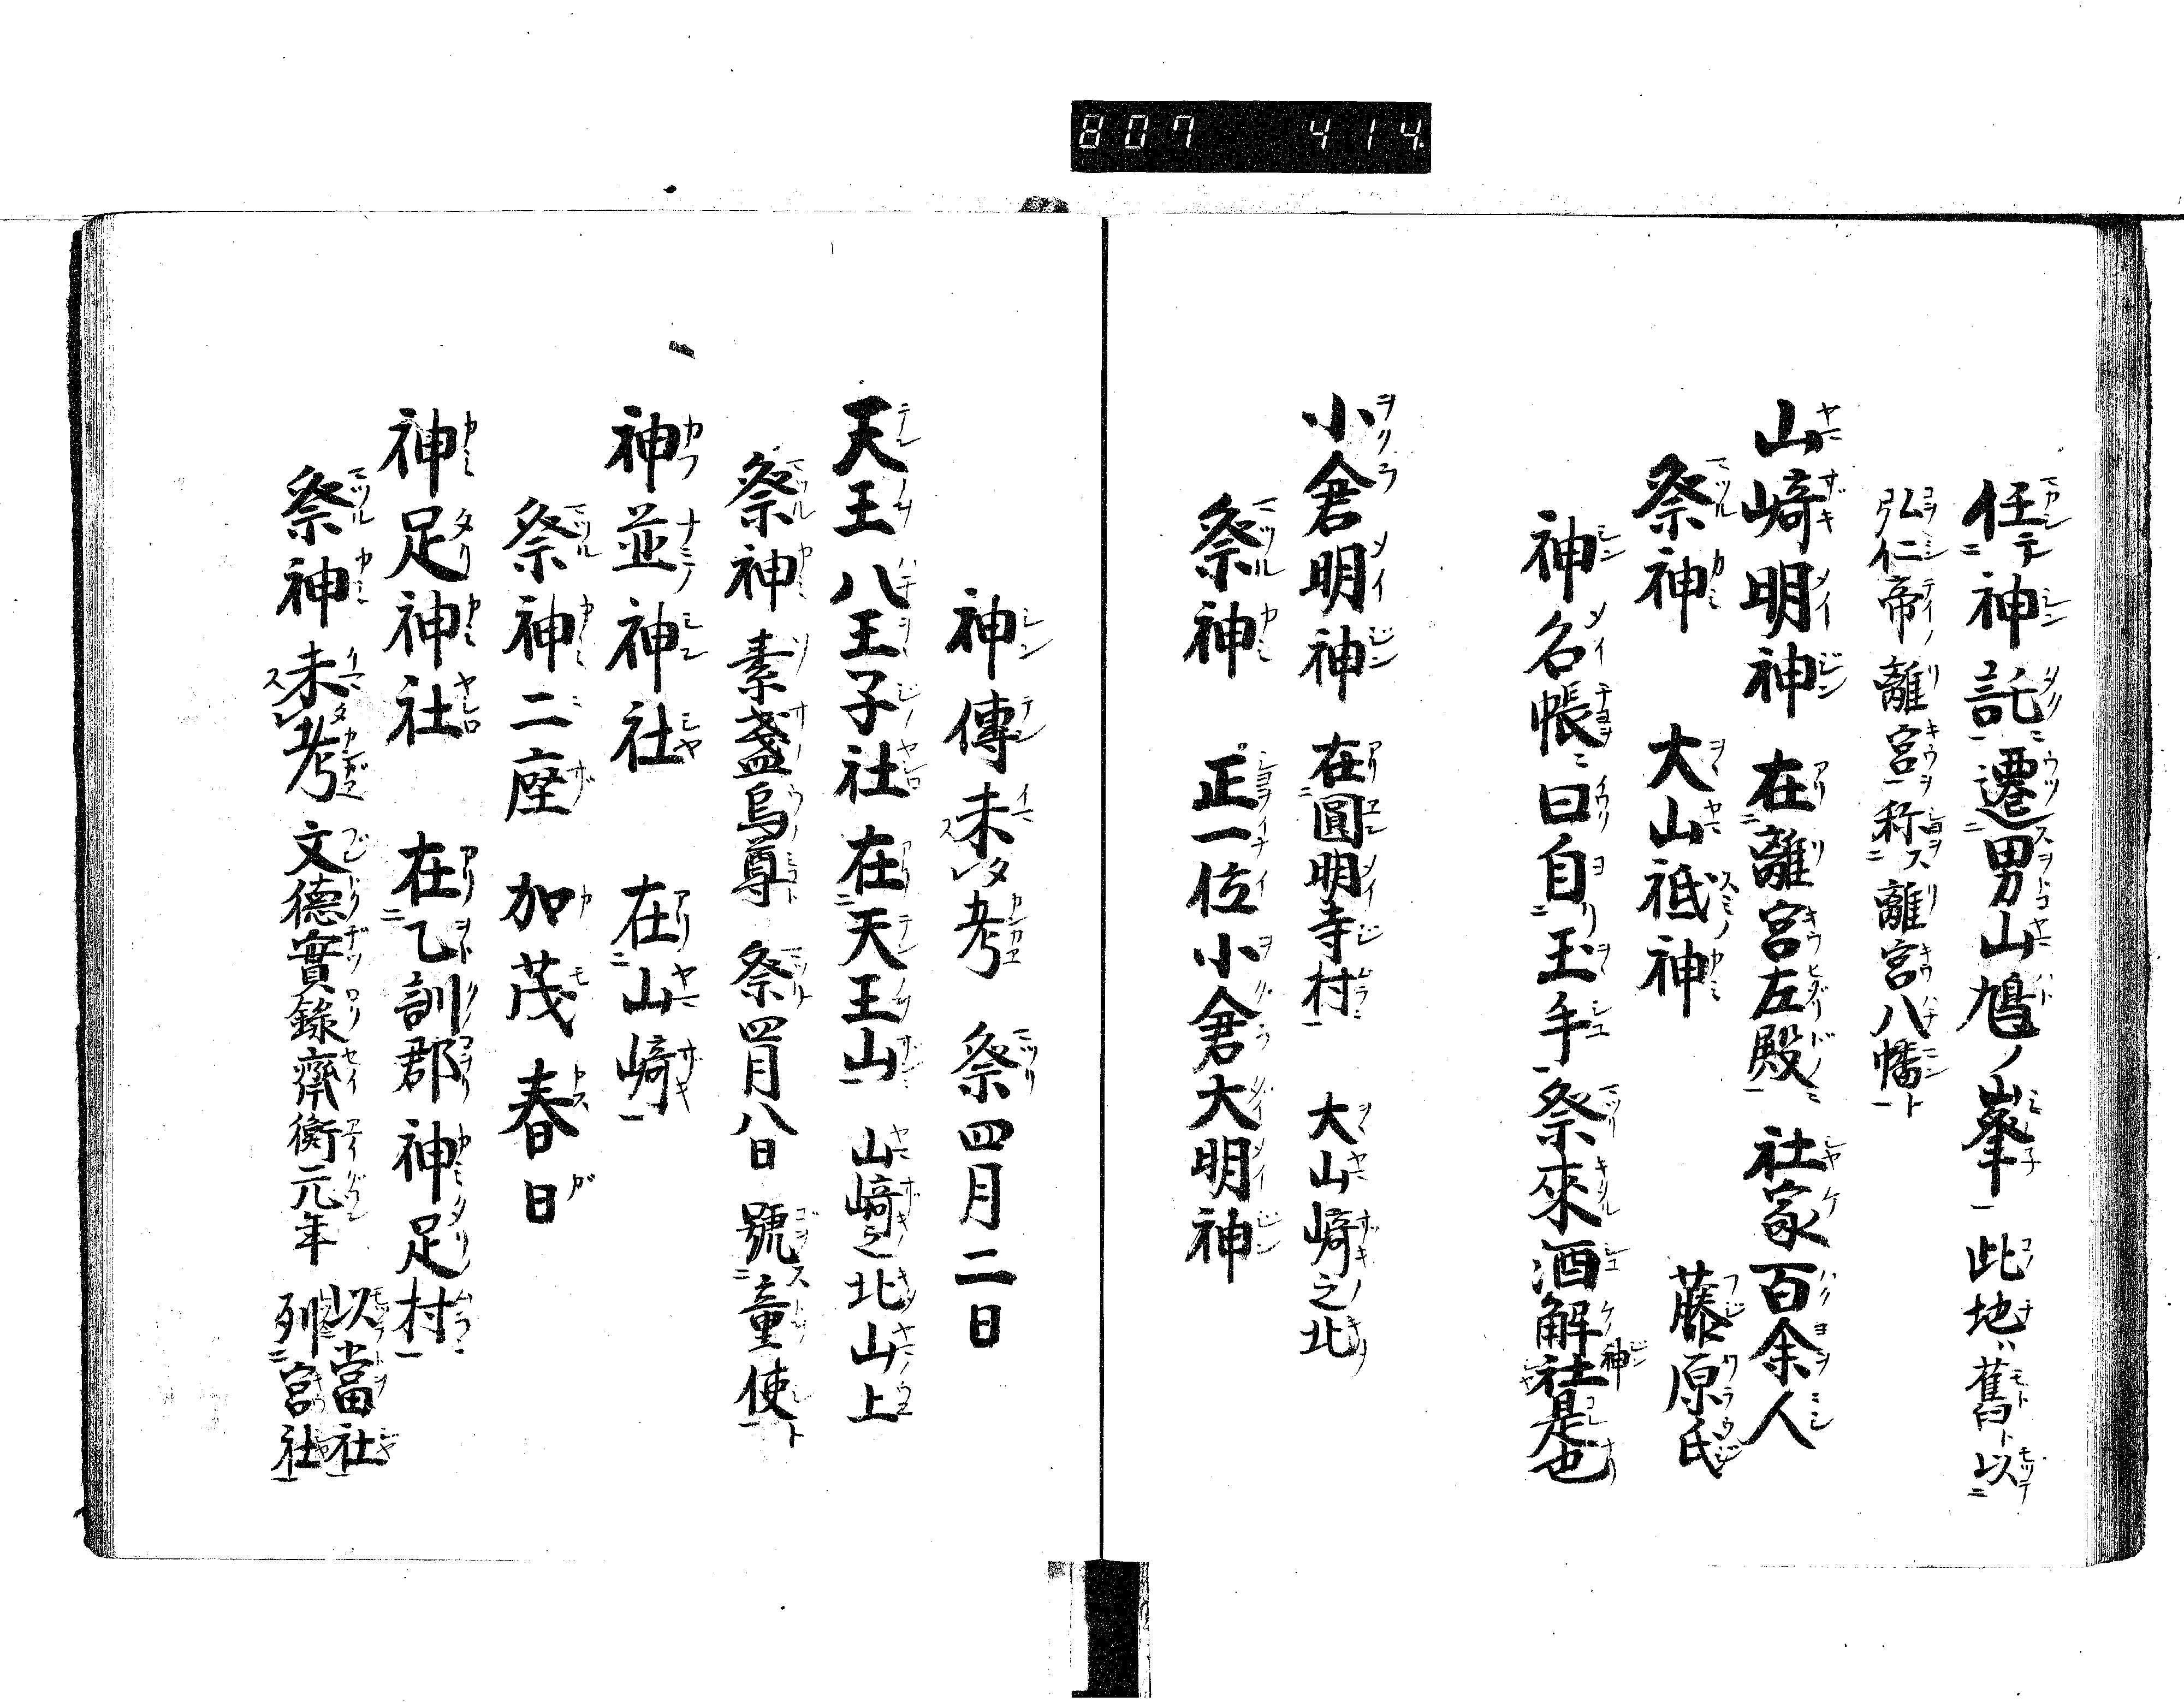 807 414
任神託遷男山鳩ノ峯此地ハ舊ト以
弘仁帝離宮称離宮八幡ト
山﨑明神 在離宮左殿 社家百余人
祭神 大山祗神 藤原氏
神名帳曰自玉手祭來酒解神社是也
小倉明神 在圓明寺村 大山﨑之北
祭神 正一位小倉大明神
神傳未考 祭四月二日
天王八王子社 在天王山 山﨑之北山上
祭神 素盞烏尊 祭四月八日 號童使ト
神並神社 在山﨑
祭神二座 加茂 春日
神足神社 在乙訓郡神足村
祭神未考 文德實錄齊衡元年 以當社
列官社